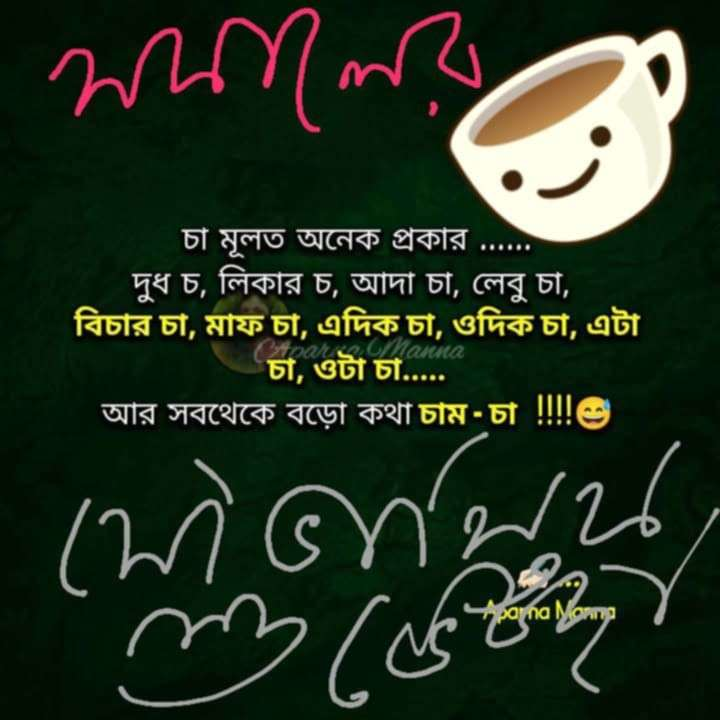 সকালের
চা মূলত অনেক প্রকার ......
দুধ চ, লিকার চ, আদা চা, লেবু চা,
বিচার চা, মাফ চা, এদিক চা, ওদিক চা, এটা
চা, ওটা চা.....
Aparna Manna
আর সবথেকে বড়ো কথা চাম - চা !!!!😅
শুভেচ্ছা
Aparna Manna